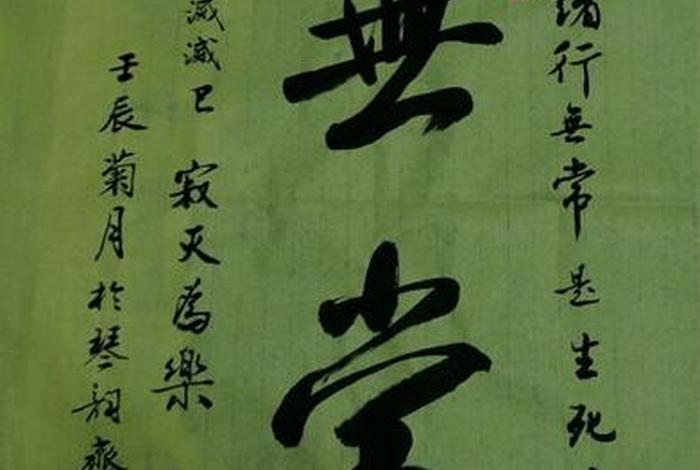 諸行無常是生死
無常
滅滅已寂灭為樂
壬辰菊月於琴韵齋